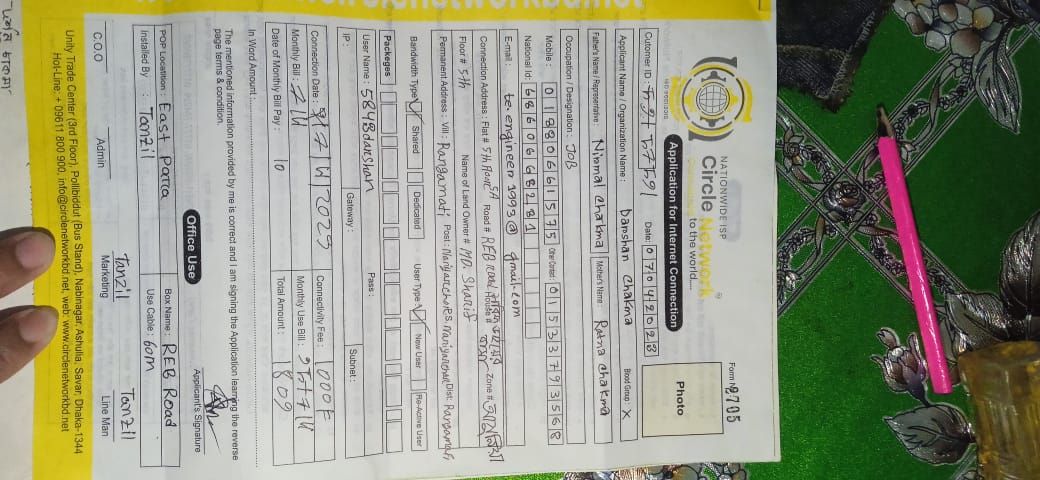 NATIONWIDE ISP
Circle Network
to the world...
Application for Internet Connection
Form No 2705
Photo
Cutomer ID : Date: 07042023
Applicant Name / Organization Name : Danshan chakma Blood Group : X
Father's Name / Representative : Nirmal Chakma Mother's Name : Ratna chakma
Occupation / Designation : JOB
Mobile : 01880661575 Other Contact : 01533793568
National Id : 68160668281
E-mail : te.engineer 1993@gmail.com
Connection Address : Flat # 5th Floor 5A Road # REB road House # Zone #
Floor # 5th Name of Land Owner # MD. Sharif
Permanent Address : Vill : Rangamati, Post : Dist: Rangamati
Bandwidth Type : Shared Dedicated User Type : New User Re-Active User
Packeges
User Name : 5848danshan Pass :
IP : Gateway : Subnet :
Connection Date : Connectivity Fee : 1000
Monthly Bill : Monthly Use Bill :
Date of Monthly Bill Pay : 10 Total Amount : 1809
In Word Amount :
The mentioned information provided by me is correct and i am signing the Application learning the reverse
page terms & condition.
Applicant's Signature
Office Use
POP Locatition : East Parra Box Name : REB Road
Installed By : Tanzil Use Cable : 60m
Tanzil Tanzil
C.O.O Admin Marketing Line Man
Unity Trade Center (3rd Floor), Pollibiddut (Bus Stand), Nabinagar, Ashulia, Savar, Dhaka-1344
Hot-Line: + 09611 800 900, info@circlenetworkbd.net, web: www.circlenetworkbd.net